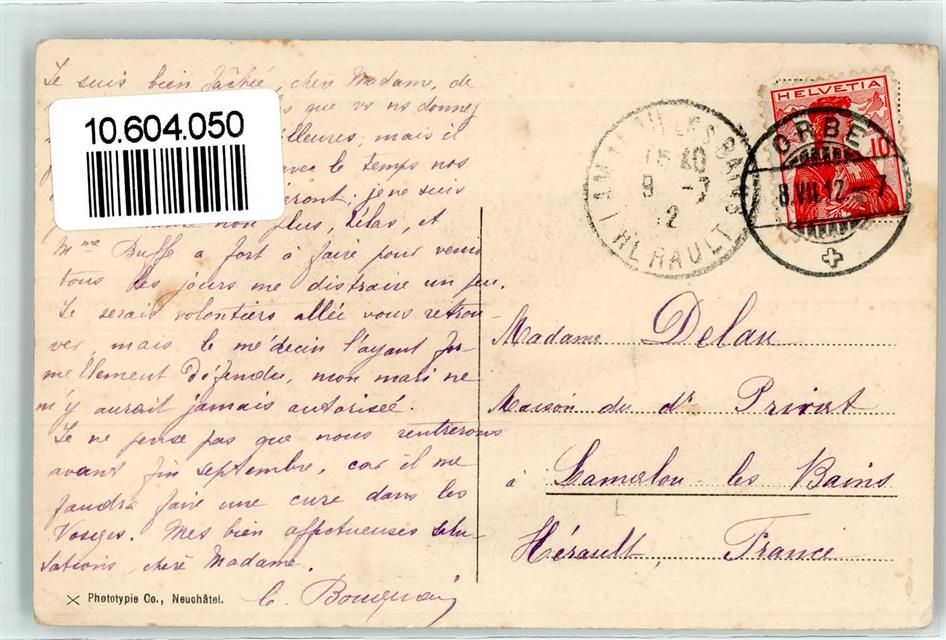 Je suis bien fâchée, chère Madame, de
que vs ns donnez
meilleures, mais il
avec le temps nos
je ne suis
non plus, hélas, et
Mme Buffe a fort à faire pour venir
tous les jours me distraire un peu.
Je serais volontiers allée vous retrou-
ver, mais le médecin l'ayant for-
mellement défendu, mon mari ne
m'y aurait jamais autorisée.
Je ne pense pas que nous rentrerons
avant fin septembre, car il me
faudra faire une cure dans les
Vosges. Mes bien affectueuses salu-
tations, chère Madame.
10.604.050
Phototypie Co., Neuchâtel.
HELVETIA
10
ORBE
8.VII.12 - 7
LAMALOU LES BAINS
HERAULT
Madame Delau
Maison du dr Privat
à Lamalou-les-Bains
Hérault, France